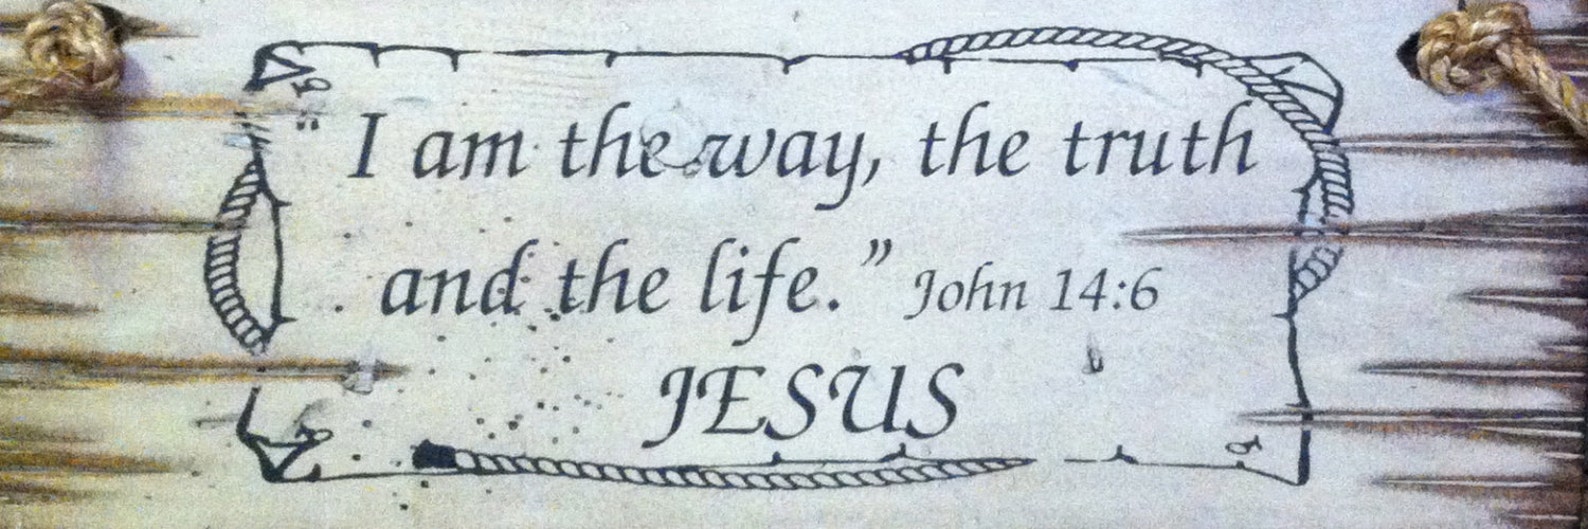 " I am the way, the truth
and the life." John 14:6
JESUS